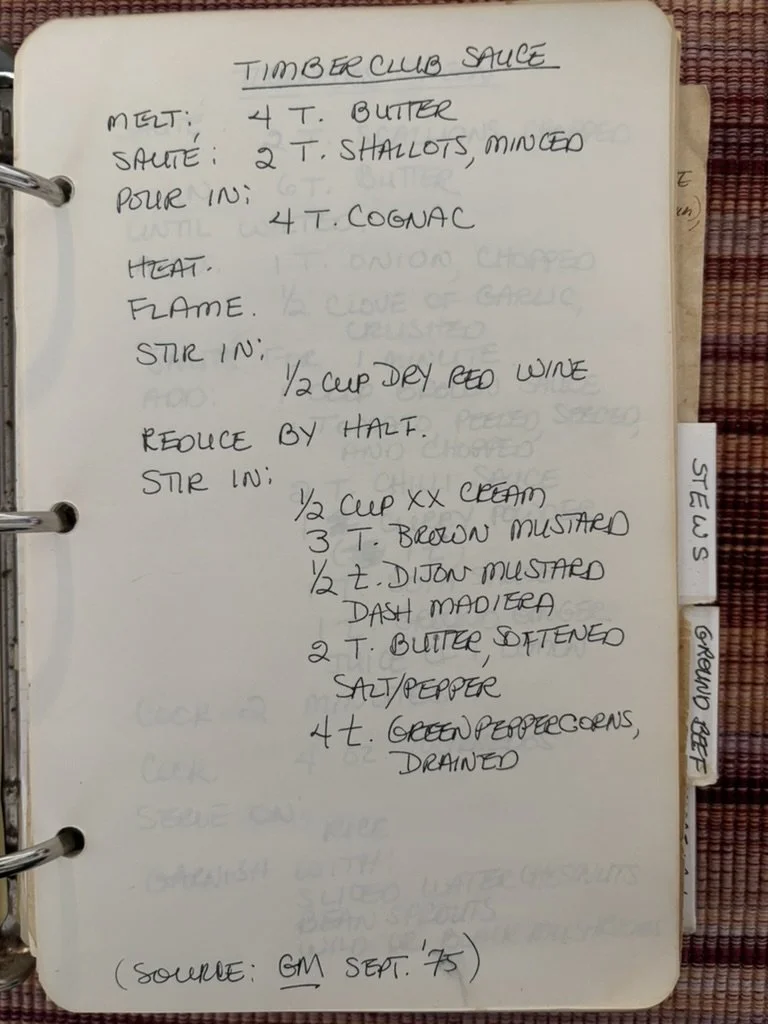 TIMBERCLUB SAUCE
MELT: 4 T. BUTTER
SAUTÉ: 2 T. SHALLOTS, MINCED
POUR IN:
4 T. COGNAC
HEAT.
FLAME.
STIR IN:
1/2 CUP DRY RED WINE
REDUCE BY HALF.
STIR IN:
1/2 CUP XX CREAM
3 T. BROWN MUSTARD
1/2 t. DIJON MUSTARD
DASH MADIERA
2 T. BUTTER, SOFTENED
SALT/PEPPER
4 t. GREEN PEPPERCORNS,
DRAINED
(SOURCE: GM SEPT. '75)
STEWS
GROUND BEEF